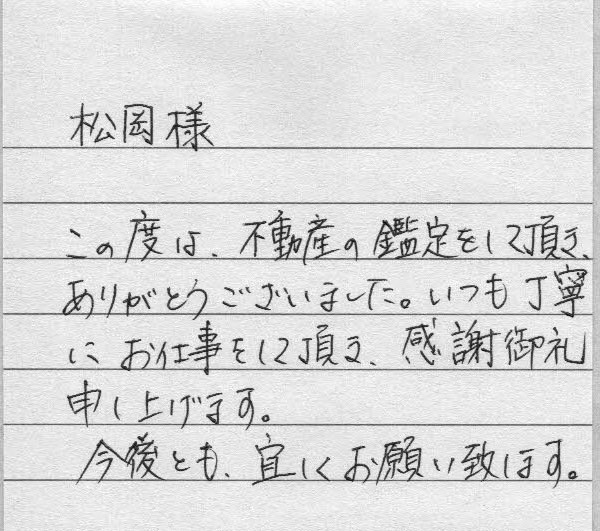 松岡様
この度は、不動産の鑑定をして頂き、
ありがとうございました。いつも丁寧
にお仕事をして頂き、感謝御礼
申し上げます。
今後とも、宜しくお願い致します。